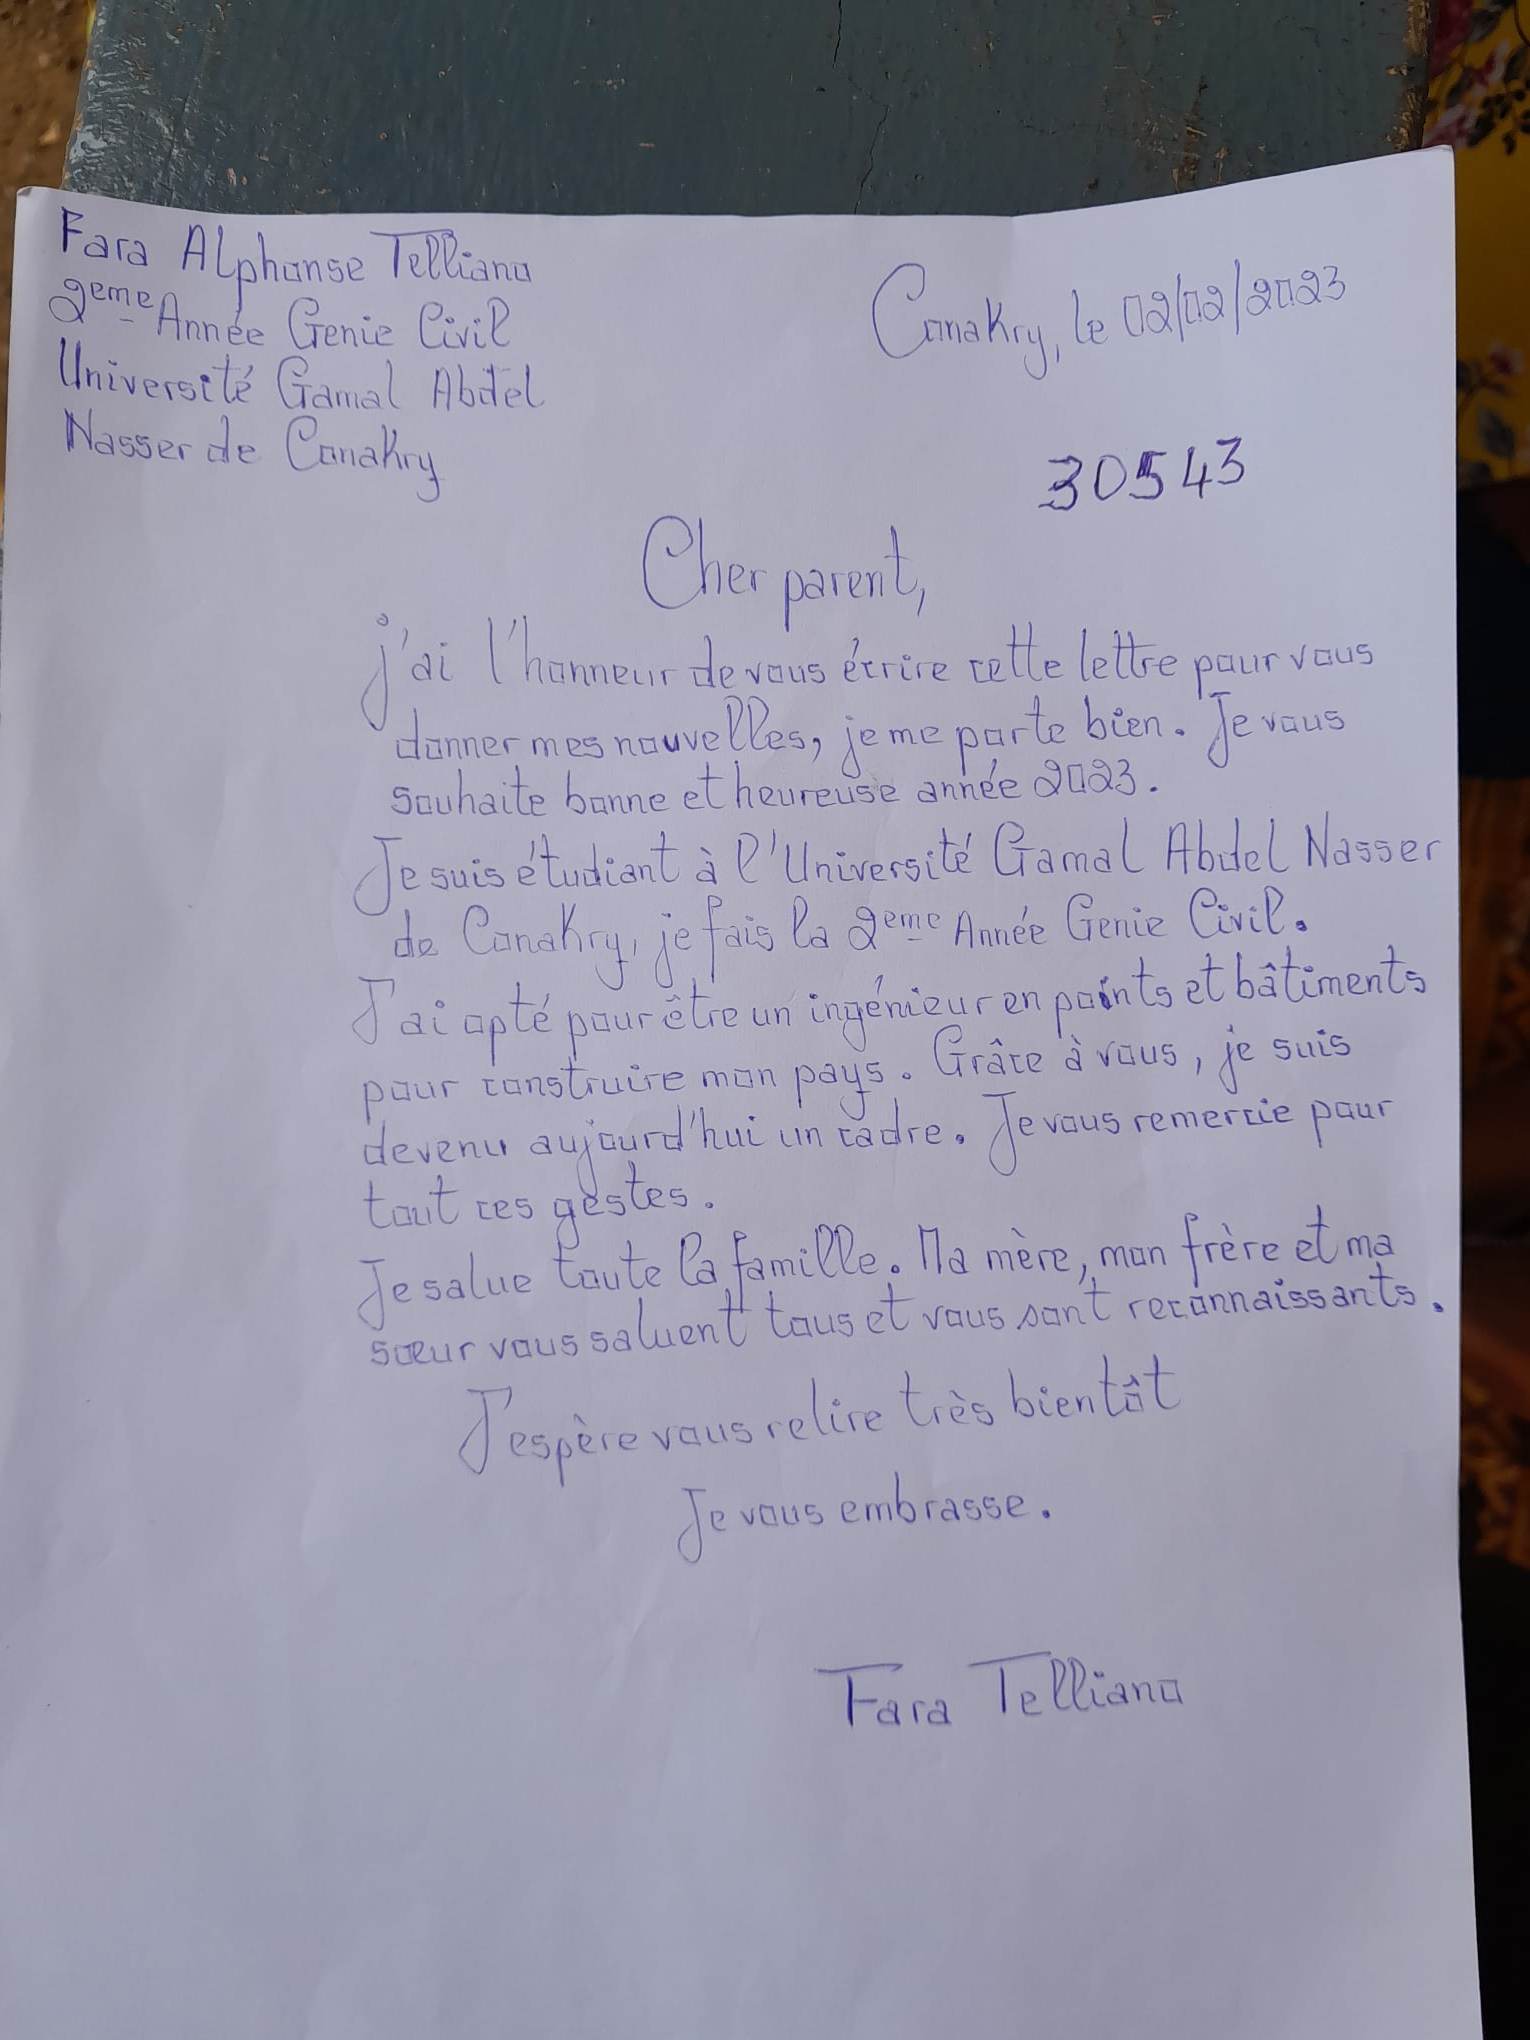 Fara Alphonse Telliano
2eme Année Genie Civil
Université Gamal Abdel
Nasser de Conakry
Conakry, le 02/02/2023
30543
Cher parent,
j'ai l'honneur de vous écrire cette lettre pour vous
donner mes nouvelles, je me porte bien. Je vous
souhaite bonne et heureuse année 2023.
Je suis étudiant à l'Université Gamal Abdel Nasser
de Conakry, je fais la 2eme Année Genie Civil.
J'ai opté pour être un ingénieur en points et bâtiments
pour construire mon pays. Grâce à vous, je suis
devenu aujourd'hui un cadre. Je vous remercie pour
tout ces gestes.
Je salue toute la famille. Ma mère, mon frère et ma
sœur vous saluent tous et vous sont reconnaissants.
J'espère vous relire très bientôt
Je vous embrasse.
Fara Telliano